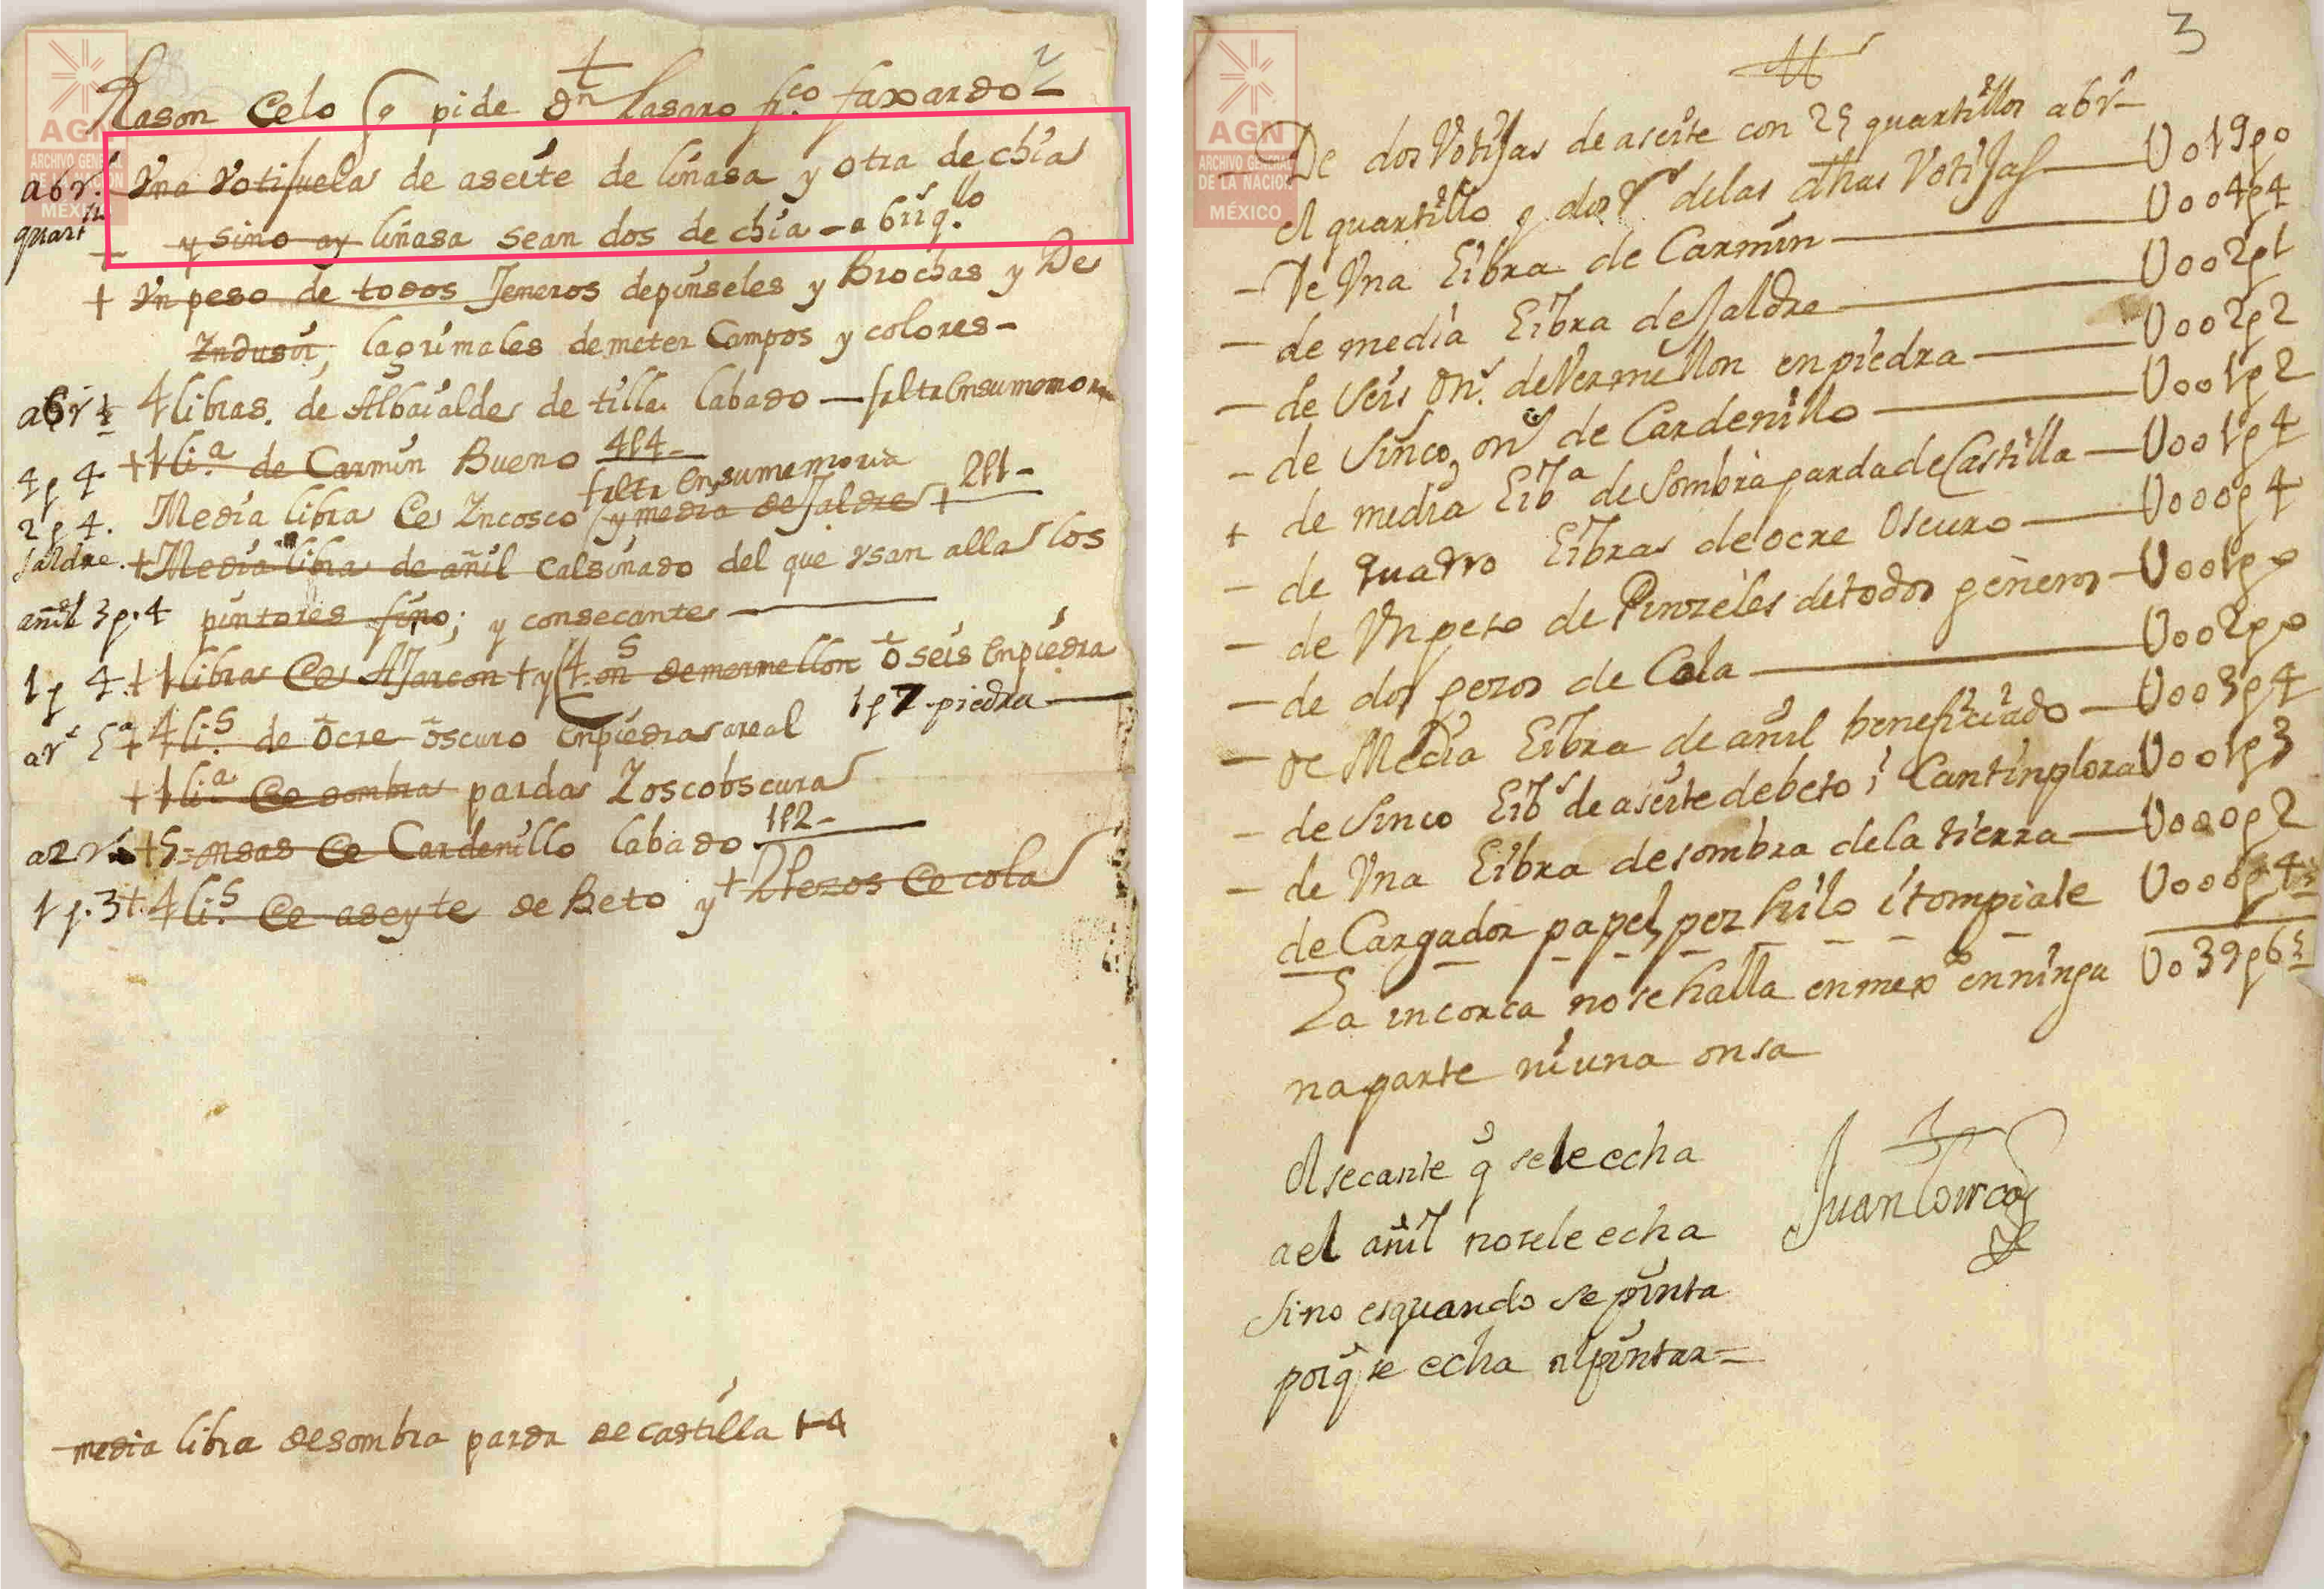 AGN
ARCHIVO GENERAL
DE LA NACION
MÉXICO
2
Rason de lo q pide Dn Lasaro fr.co faxardo
a 6 r.s Una votijuela de aseite de linasa y otra de chia
quart.o y sino ay linasa sean dos de chia - a 6 rs q.llo
+ Un peso de todos Jeneros de pinseles y Brochas y De
Indusir, lagrimales de meter Campos y colores -
a 6 r 4 libras. de Albaialde de tilla labado — falta en su memoria
4 p 4 + 1 li.a de Carmin Bueno 4p4 -
falta en su memoria
2 p 4. Media libra de Incosco y media de Jaldre + 2p1 -
Jaldre. + Media libra de añil calsinado del que usan alla los
añil 3 p. 4 pintores fino; y con secante
1 p 4. + 1 libra de AJarcon + y 4. on.s de mermellon ō seis en piedra
1 p 7 piedra
a r.s + 4 li.s de ōcre ōscuro en piedra
+ 1 li.a de sombra parda
a 2 r.s + 5 = onsas de Cardenillo labado 1p2 -
1 p. 3 +. 4 li.s de aseyte de Beto y + 2 pezos de cola
media libra de sombra parda de castilla 1-4
AGN
ARCHIVO GENERAL
DE LA NACION
MÉXICO
3
De dos Votijas de aseite con 25 quartillos a 6 r.s
el quartillo y dos r.s de las dhas Votijas — U019p0
— De Una Libra de Carmin — U004p4
— de media Libra de Jaldre — U002p1
— de Seis on.s de Vermillon en piedra — U002p2
— de Sinco on.s de Cardenillo — U001p2
+ de media Lib.a de Sombra parda de Castilla — U001p4
— de quatro Libras de ocre Oscuro — U000p4
— de Un peso de Pinzeles de todos generos — U001p0
— de dos pezos de Cola — U002p0
— de Media Libra de añil beneficiado — U003p4
— de Sinco Lib.s de aseite de beto i Cantinplora U001p3
— de Una Libra de sombra de la tierra — U000p2
de Cargador papel, pez hilo i tompiate U000p4
La incorca no se halla en mex.co en ningu U039p6
na parte ni una onsa
el secante q se le echa
a el añil no se le echa
sino es quando se pinta
porq se echa al pintar =
Juan